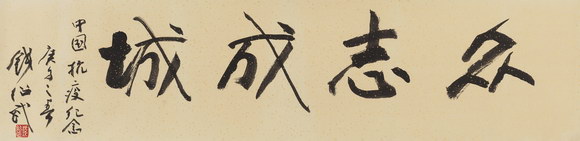 众志成城
中国抗疫纪念
庚子之春
钱绍武